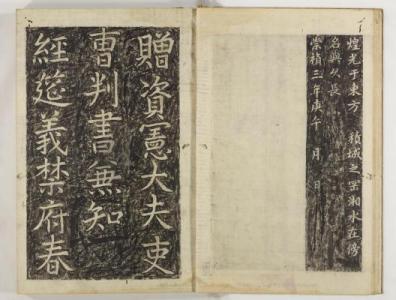 煌光于東方 積城之罡湘水在傍
名與久長
崇禎三年庚午 月 日
贈資憲大夫吏
曺判書兼知
經筵義禁府春